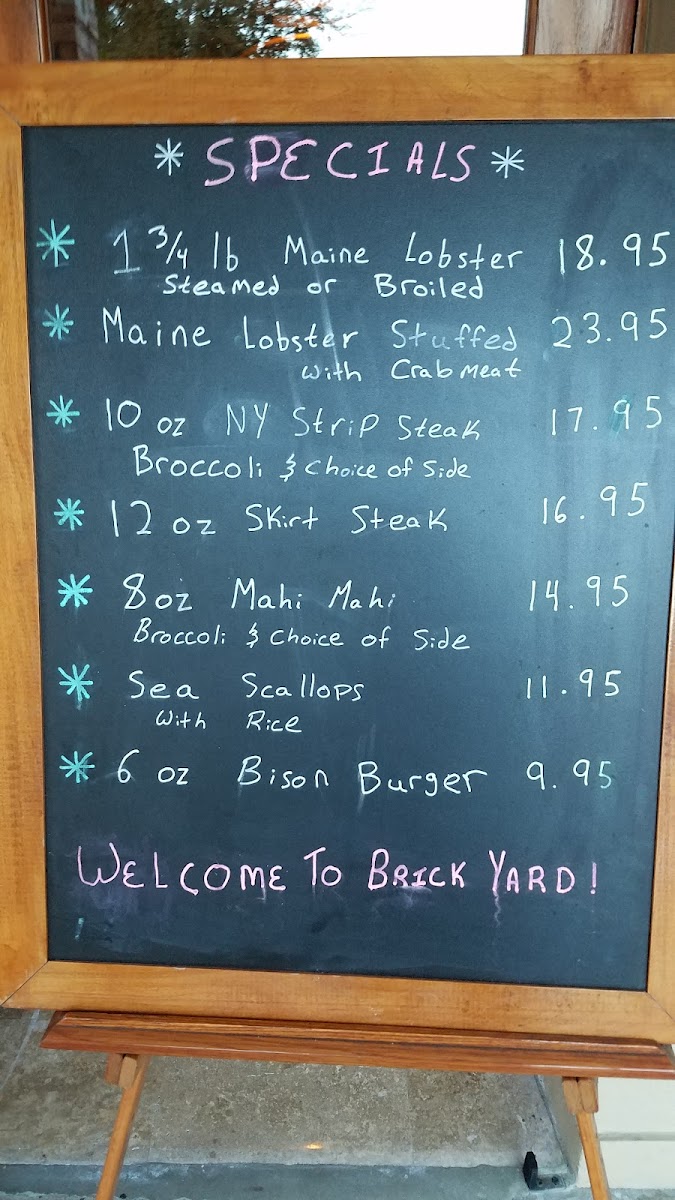 * SPECIALS *
* 1 3/4 lb Maine Lobster 18.95
Steamed or Broiled
* Maine Lobster Stuffed 23.95
with Crab Meat
* 10 oz NY Strip Steak 17.95
Broccoli & Choice of Side
* 12 oz Skirt Steak 16.95
* 8 oz Mahi Mahi 14.95
Broccoli & Choice of Side
* Sea Scallops 11.95
with Rice
* 6 oz Bison Burger 9.95
WELCOME TO BRICK YARD!